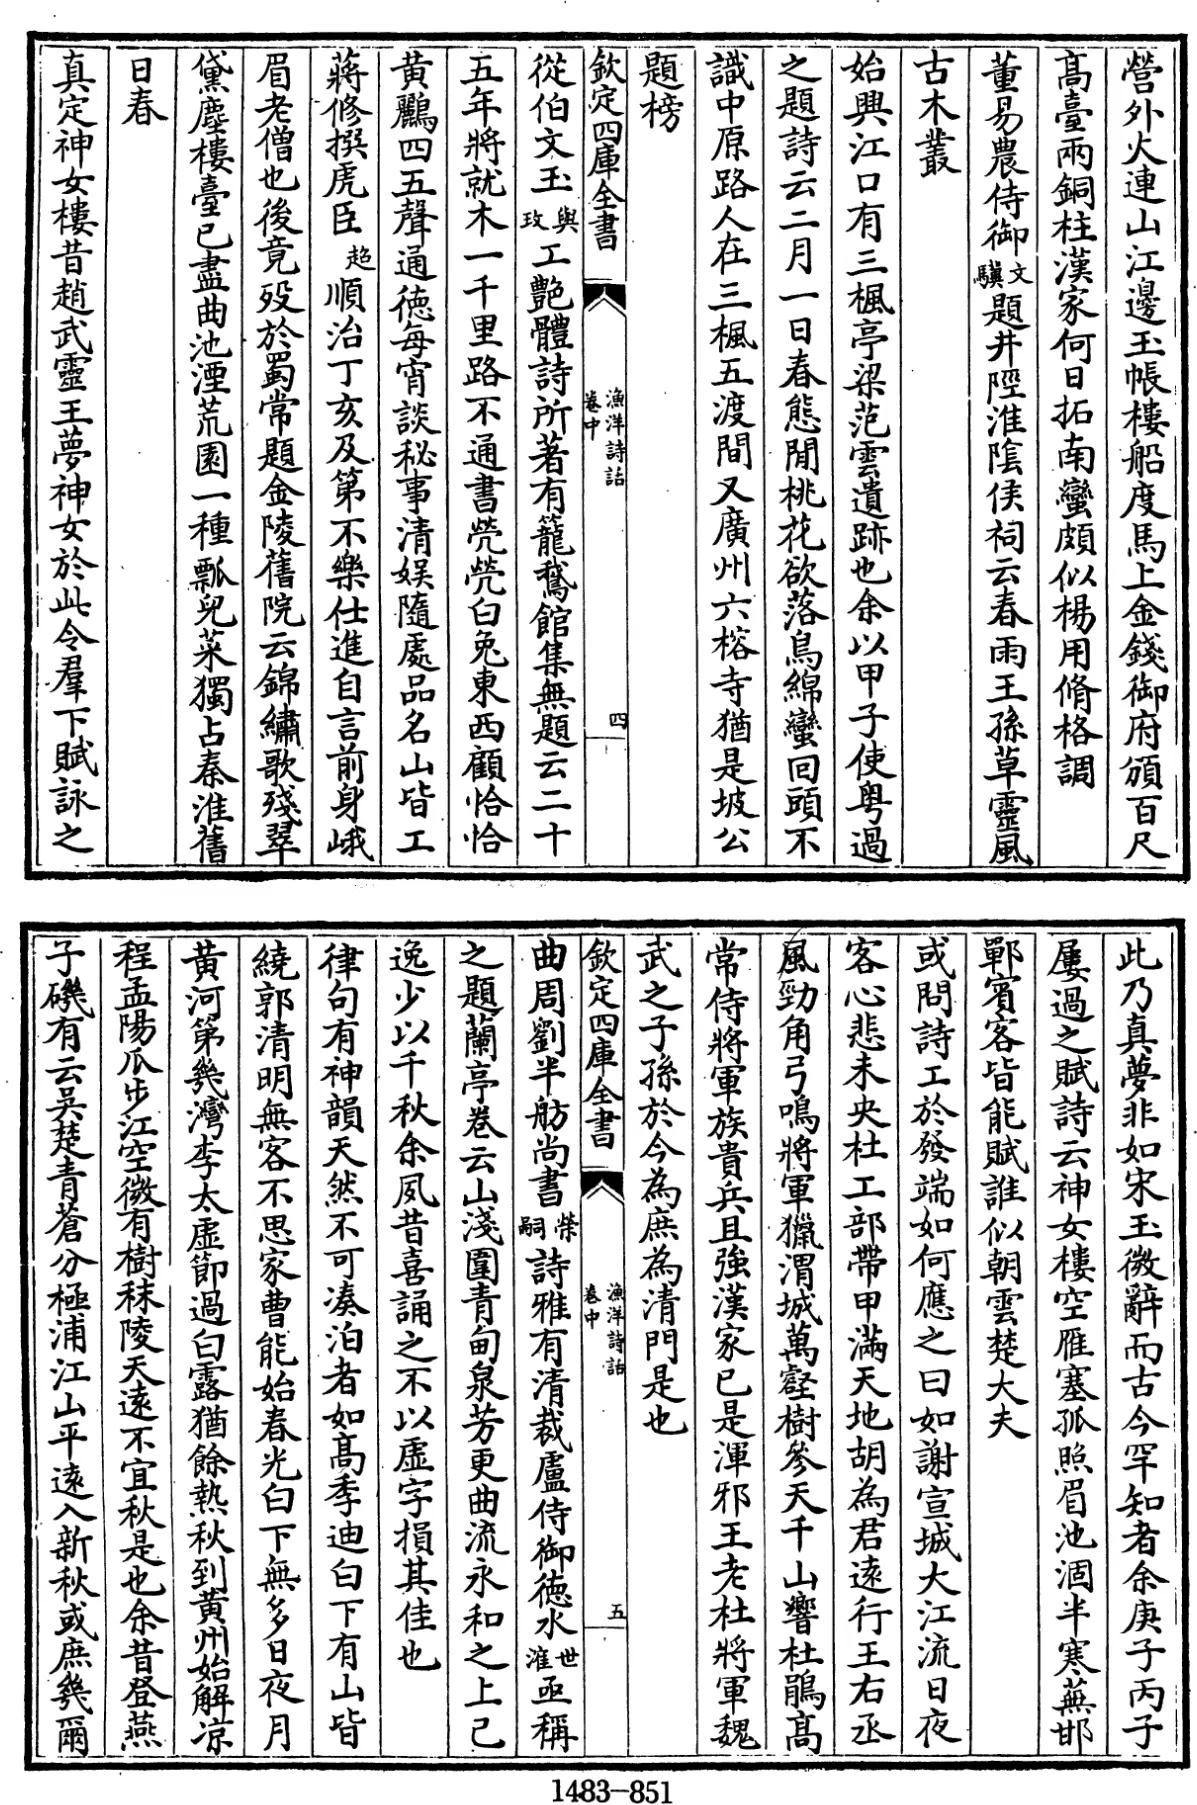 營外火連山江邊玉帳樓船度馬上金錢御府頒百尺
髙臺兩銅柱漢家何日拓南蠻頗似楊用脩格調
董易農侍御文驥題井陘淮陰侯祠云春雨王孫草靈風
古木叢
始興江口有三楓亭梁范雲遺跡也余以甲子使粤過
之題詩云二月一日春態閒桃花欲落鳥綿蠻回頭不
識中原路人在三楓五渡間又廣州六榕寺猶是坡公
題榜
欽定四庫全書
漁洋詩話
卷中
四
從伯文玉與玫工艷體詩所著有籠鵞館集無題云二十
五年將就木一千里路不通書煢煢白兎東西顧恰恰
黄鸝四五聲通德每宵談秘事清娱隨處品名山皆工
蔣修撰虎臣超順治丁亥及第不樂仕進自言前身峨
眉老僧也後竟歿於蜀常題金陵舊院云錦繡歌殘翠
黛塵樓臺已盡曲池湮荒園一種瓢兒菜獨占秦淮舊
日春
真定神女樓昔趙武靈王夢神女於此令羣下賦詠之
此乃真夢非如宋玉微辭而古今罕知者余庚子丙子
屢過之賦詩云神女樓空雁塞孤照眉池涸半寒蕪邯
鄲賓客皆能賦誰似朝雲楚大夫
或問詩工於發端如何應之曰如謝宣城大江流日夜
客心悲未央杜工部帶甲滿天地胡為君遠行王右丞
風勁角弓鳴將軍獵渭城萬壑樹參天千山響杜鵑髙
常侍將軍族貴兵且強漢家已是渾邪王老杜將軍魏
武之子孫於今為庶為清門是也
欽定四庫全書
漁洋詩話
卷中
五
曲周劉半舫尚書榮嗣詩雅有清裁盧侍御德水世㴶亟稱
之題蘭亭卷云山淺圍青甸泉芳更曲流永和之上已
逸少以千秋余夙昔喜誦之不以虚字損其佳也
律句有神韻天然不可湊泊者如髙季迪白下有山皆
繞郭清明無客不思家曹能始春光白下無多日夜月
黄河第幾灣李太虚節過白露猶餘熱秋到黄州始解凉
程孟陽瓜步江空微有樹秣陵天遠不宜秋是也余昔登燕
子磯有云吳楚青蒼分極浦江山平遠入新秋或庶幾爾
1483-851